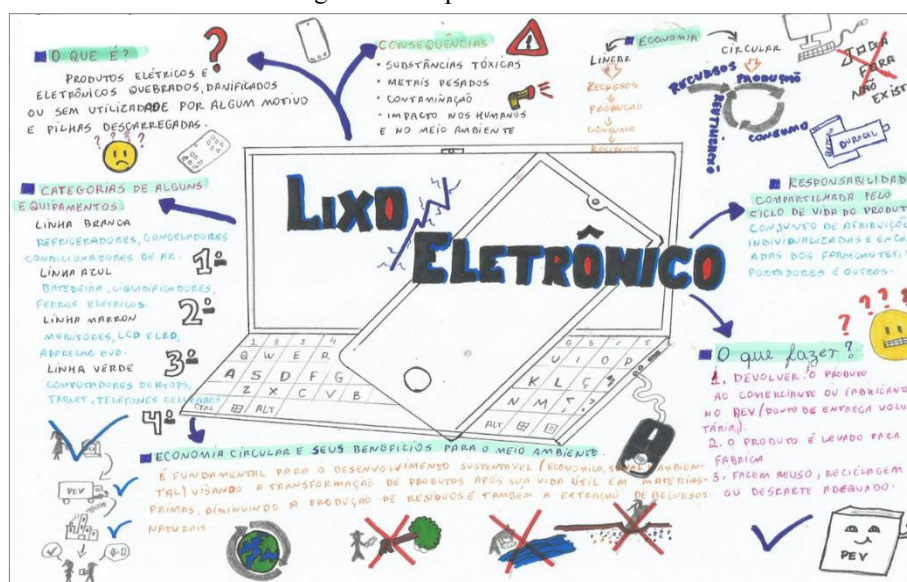 O QUE É?
PRODUTOS ELÉTRICOS E
ELETRÔNICOS QUEBRADOS, DANIFICADOS
OU SEM UTILIZADADE POR ALGUM MOTIVO
E PILHAS DESCARREGADAS.
CONSEQUÊNCIAS
• SUBSTÂNCIAS TÓXICAS
• METAIS PESADOS
• CONTAMINAÇÃO
• IMPACTO NOS HUMANOS
E NO MEIO AMBIENTE
ECONOMIA
LINEAR
RECURSOS
PRODUÇÃO
CONSUMO
RESÍDUOS
CIRCULAR
RECURSOS
PRODUÇÃO
CONSUMO
JOGA
FORA
NÃO
EXISTE
DURACEL
LIXO
ELETRÔNICO
CATEGORIAS DE ALGUNS
EQUIPAMENTOS.
LINHA BRANCA
REFRIGERADORES, CONGELADORES
CONDICIONADORES DE AR.
1ª
LINHA AZUL
BATEDEIRA, LIQUIDIFICADORES,
FERROS ELÉTRICOS.
2ª
LINHA MARRON
MONITORES, LCD E LED,
APARELHO DVD.
3ª
LINHA VERDE
COMPUTADORES DESKTOPS,
TABLET, TELEFONES CELULARES
4ª
RESPONSABILIDAD
COMPARTILHADA PELO
CICLO DE VIDA DO PRODUT
CONJUNTO DE ATRIBUIÇÕE
INDIVIDUALIZADAS E ENCA
ADAS DOS FABRICANTES,
PORTADORES E OUTROS.
O que fazer?
1. DEVOLVER O PRODUTO
AO COMERCIANTE OU FABRICANTE
NO PEV (PONTO DE ENTREGA VOLU
TÁRIA).
2. O PRODUTO É LEVADO PARA
FABRICA
3. FAZEM REUSO, RECICLAGEM
OU DESCARTE ADEQUADO.
PEV
1 2 3 4
Q W E R
A S D F G
Z X C V B
CTRL ALT
U I O P
K L Ç
N M
ALT
ECONOMIA CIRCULAR E SEUS BENEFÍCIOS PARA O MEIO AMBIENTE
É FUNDAMENTAL PARA O DESENVOLVIMENTO SUSTENTÁVEL (ECONÔMICO, SOCIAL AMBIEN-
TAL) VISANDO A TRANSFORMAÇÃO DE PRODUTOS APÓS SUA VIDA ÚTIL EM MATÉRIAS-
PRIMAS, DIMINUINDO A PRODUÇÃO DE RESÍDUOS E TAMBÉM A EXTRAÇÃO DE RECURSOS
NATURAIS
PEV